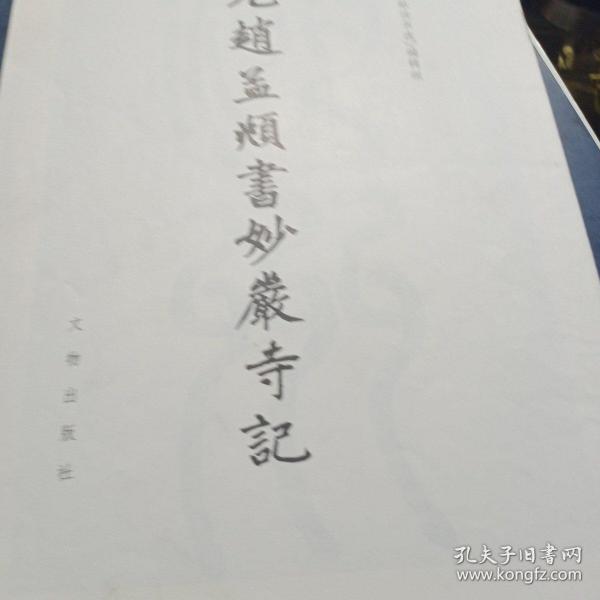 元趙孟頫書妙嚴寺記
文物出版社
孔夫子旧書网
www.kongfz.com